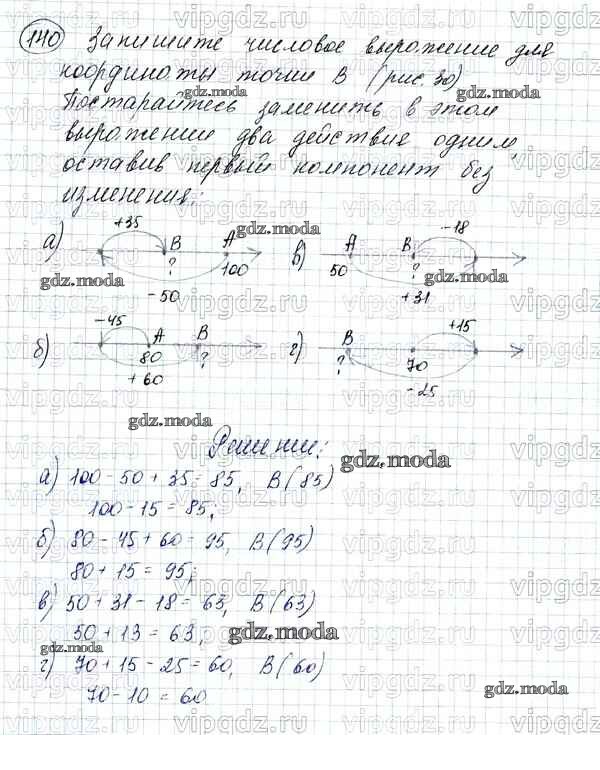 140 Запишите числовое выражение для
координаты точки В (рис. 30)
Постарайтесь заменить в этом
выражении два действия одним,
оставив первый компонент без
изменения:
а) +35 В А ? 100 -50
в) А В -18 50 ? +31
б) -45 А В 80 ? +60
г) В +15 ? 70 -25
Решение:
а) 100 - 50 + 35 = 85, В(85)
100 - 15 = 85;
б) 80 - 45 + 60 = 95, В(95)
80 + 15 = 95;
в) 50 + 31 - 18 = 63, В(63)
50 + 13 = 63,
г) 70 + 15 - 25 = 60, В(60)
70 - 10 = 60
gdz.moda
vipgdz.ru